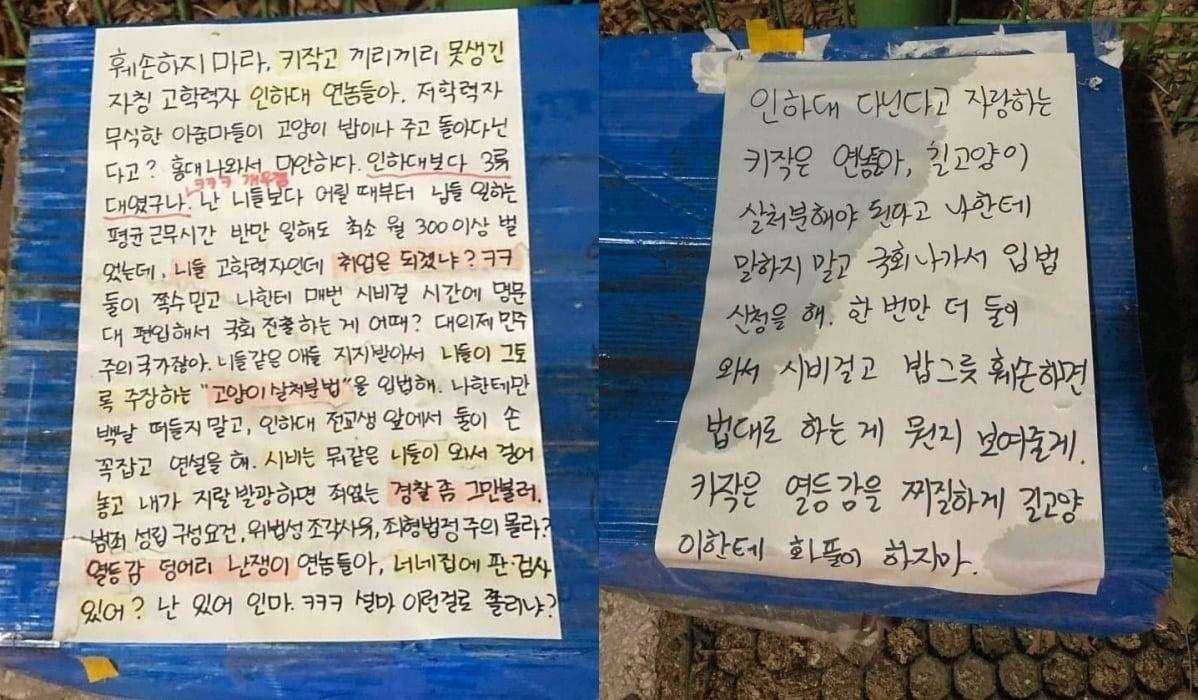 훼손하지 마라, 키작고 끼리끼리 못생긴
자칭 고학력자 인하대 연놈들아. 저학력자
무식한 아줌마들이 고양이 밥이나 주고 돌아다닌
다고? 홍대 나와서 미안하다. 인하대보다 3류
ㅋㅋㅋ 개웃김
대였구나. 난 니들보다 어릴 때부터 남들 일하는
평균 근무시간 반만 일해도 최소 월 300 이상 벌
었는데, 니들 고학력자인데 취업은 되겠냐? ㅋㅋ
둘이 쪽수 믿고 나한테 매번 시비걸 시간에 명문
대 편입해서 국회 진출하는 게 어때? 대의제 민주
주의 국가잖아. 니들같은 애들 지지받아서 니들이 그토
록 주장하는 "고양이 살처분 법"을 입법해. 나한테만
백날 떠들지 말고, 인하대 전교생 앞에서 둘이 손
꼭잡고 연설을 해. 시비는 뭐같은 니들이 와서 걸어
놓고 내가 지랄발광하면 죄없는 경찰 좀 그만불러.
범죄 성립 구성요건, 위법성 조각사유, 죄형법정주의 몰라?
열등감 덩어리 난쟁이 연놈들아, 너네집에 판·검사
있어? 난 있어 인마. ㅋㅋㅋ 설마 이런걸로 쫄리냐?
인하대 다닌다고 자랑하는
키작은 연놈들아, 길고양이
살처분해야 된다고 나한테
말하지 말고 국회 나가서 입법
신청을 해. 한 번만 더 둘이
와서 시비걸고 밥그릇 훼손하면
법대로 하는 게 뭔지 보여줄게.
키작은 열등감을 찌질하게 길고양
이한테 화풀이 하지마.